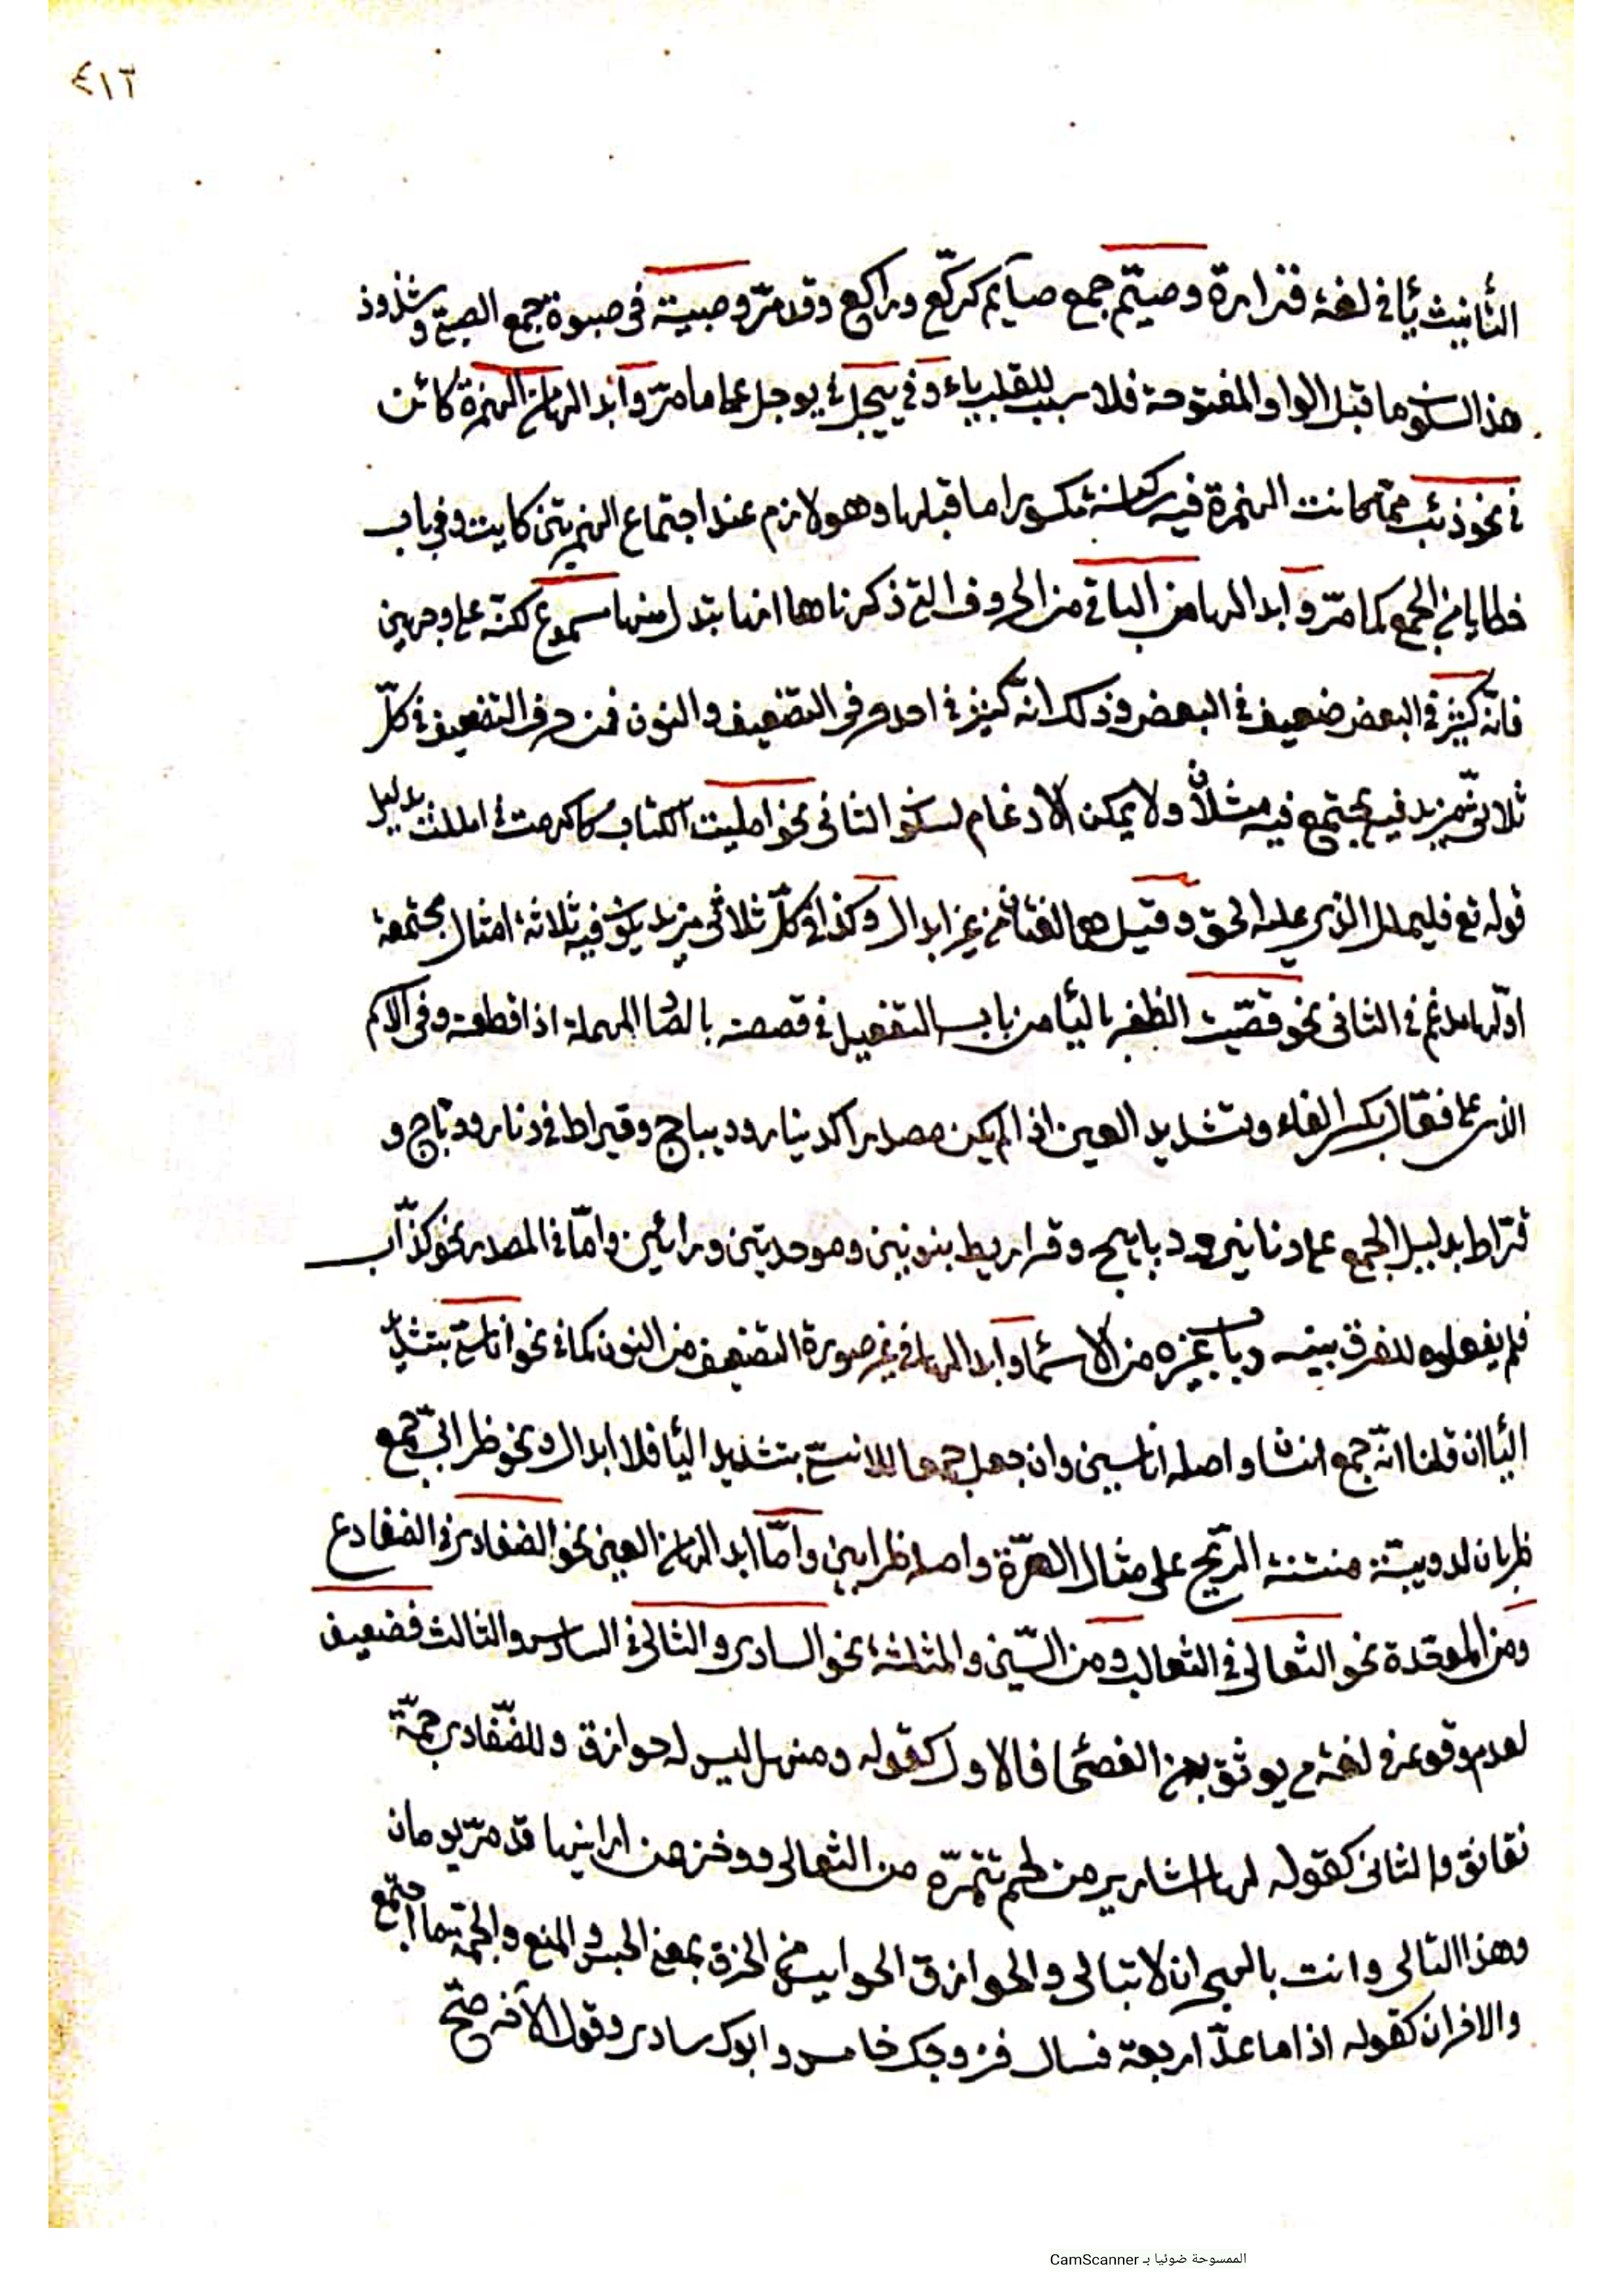 ٤١٣
التأنيث يا في لغة فزارة وصيّم جمع صايم كركّع وراكع وقد مرّ وصبية في صبوة جمع الصبي وشذوذ
هذا لسكون ما قبل الواو المفتوحة فلا سبب للقلب ياء وفي ييجل في يوجل على ما مرّ وابدالها من الهمزة كائن
في نحو ذئب مما كانت الهمزة فيه ساكنة مكسورا ما قبلها وهو لازم عند اجتماع الهمزتين كايت وفي باب
خطايا في الجمع كما مرّ وابدالها من الباقي من الحروف التي ذكرناها انها تبدل منها مسموع لكنه على وجهين
فانه كثير في البعض ضعيف في البعض وذلك انه كثير في احد حرفي التضعيف والنون فمن حرف التضعيف في كلّ
ثلاثي مزيد فيه يجتمع فيه مثلان ولا يمكن الادغام لسكون الثاني نحو امليت الكتاب كاكرمت في امللت بدليل
قوله تع فليملل الذي عليه الحق وقيل هما لغتان من غير ابدال وكذا في كلّ ثلاثي مزيد يكون فيه ثلاثة امثال مجتمعة
اوّلها مدغم في الثاني نحو قصّيت الظفر باليا من باب التفعيل في قصصته بالصاد المهملة اذا قطعته وفي الاسم
الذي على فعّال بكسر الفاء وتشديد العين اذا لم يكن مصدرا كدينار وديباج وقيراط في دنار ودبّاج و
قرّاط بدليل الجمع على دنانير ودبابيج وقراريط بنونين وموحدتين ورائين وامّا في المصدر نحو كذّاب
فلم يفعلوه للفرق بينه وبين غيره من الاسماء وابدالها في غير صورة التضعيف من النون كما في نحو اناسيّ بتشديد
اليا ان قلنا انّه جمع انسان واصله اناسين وان جعل جمعا للانسيّ بتشديد اليا فلا ابدال ونحو ظرابيّ جمع
ظربان لدويبّة منتنة الريح على مثال الهرّة واصله ظرابين وامّا ابدالها من العين نحو الضفادي في الضفادع
ومن الموحّدة نحو الثعالي في الثعالب ومن السّين والمثلثة نحو السادي والثالي في السادس والثالث فضعيف
لعدم وقوعه في لغة من يوثق بهم من الفصحا فالاول كقوله ومنهل ليس له حوازق وللضّفادي جمّة
نقانق والثاني كقوله لها اشارير من لحم تتمّره من الثعالي ووخز من ارانيها قد مرّ يومان
وهذا الثالي وانت بالهجران لا تبالي والحوازق الحوابس من الحزق بمعنى الحبس والمنع والجمّة ما اجتمع
والاخران كقوله اذا ما عدّ اربعة فسال فزوجك خامس وابوك سادي وقول الآخر حتّى
الممسوحة ضوئيا بـ CamScanner